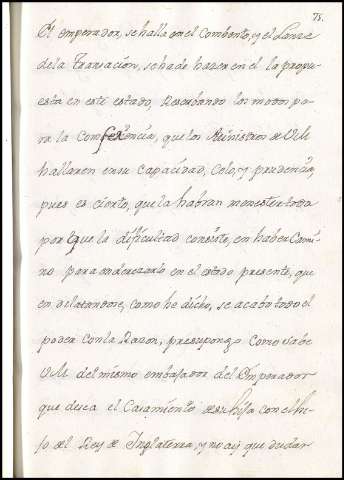 75.
El emperador, se halla en el Combento, y el Lanze
de la transacion, se ha de hazer en el la propu
esta en este estado, Reserbando los modos pa
ra la Conferencia, que los Ministros de V M
hallaren en su Capacidad, Celo, y prudencia,
pues es cierto, que la habran menester toda
porque la dificultad consiste, en haber Cami
no para enderezarlo en el estado presente, que
en dilatandose, como he dicho, se acabó todo el
poder con la Razon, presupongo como sabe
V M del mismo embajador del Emperador
que desea el Casamiento de su hija con el hi
jo del Rey de Inglaterra, y no ay que dudar